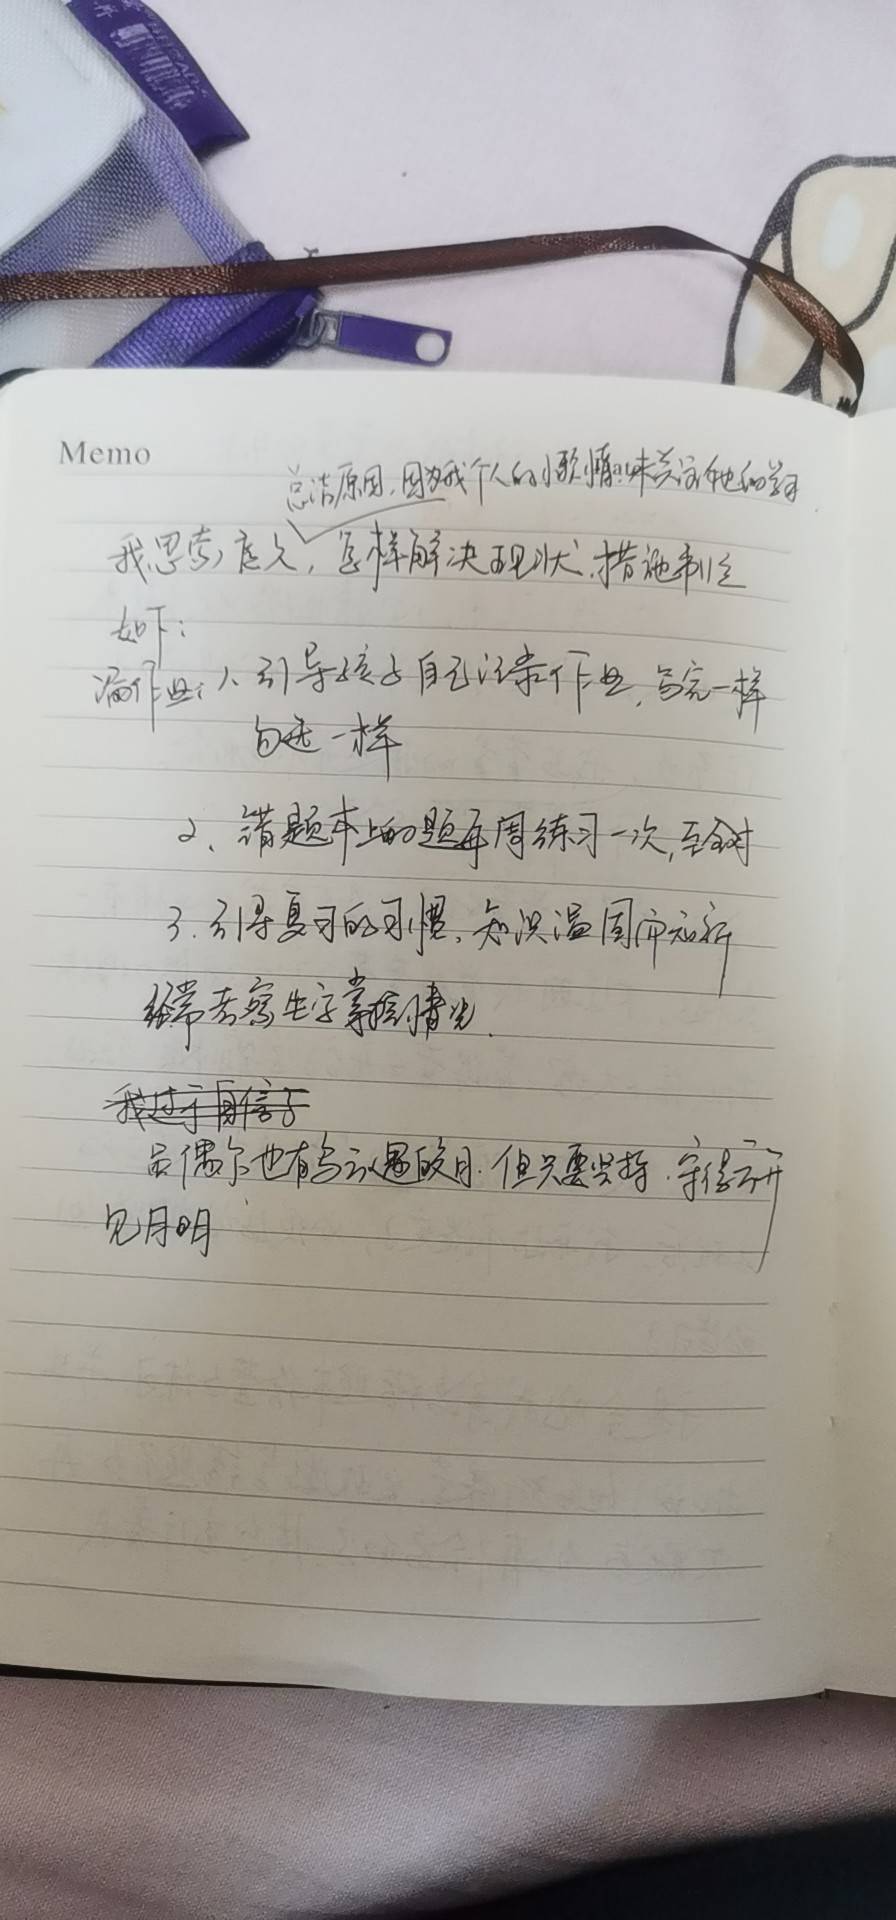 Memo
总结原因,因为我个人的小 情 未关注他的学习
我思索 良久,怎样解决现状,措施制定
如下:
漏作业:1、引导孩子自己记录作业,写完一样
勾选一样
2、错题本上的题每周练习一次,至全对
3.引导复习的习惯,知识温固而知新
经常考察生字掌握情况.
我过于自信了
虽偶尔也有乌云遇皎月.但只要坚持.守得云开
见月明